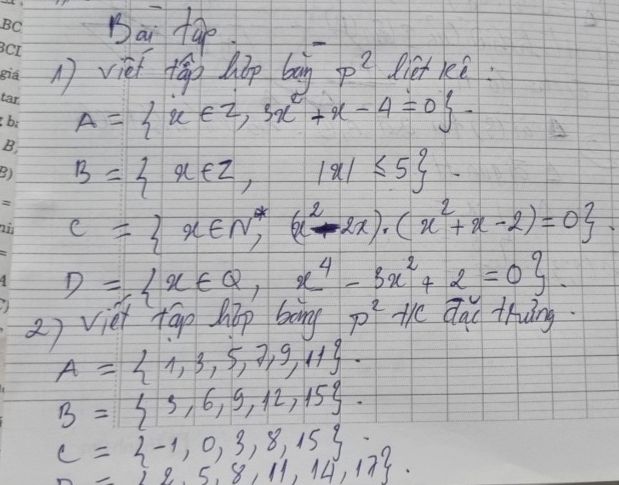 Bài tập.
1) Viết tập hợp bằng p² liệt kê :
A = { x ∈ Z, 3x² + x - 4 = 0 }.
B = { x ∈ Z, |x| ≤ 5 }.
C = { x ∈ N*, (x² - 2x).(x² + x - 2) = 0 }.
D = { x ∈ Q, x⁴ - 3x² + 2 = 0 }.
2) Viết tập hợp bằng p² t/c đặc trưng.
A = { 1, 3, 5, 7, 9, 11 }.
B = { 3, 6, 9, 12, 15 }.
C = { -1, 0, 3, 8, 15 }.
D = { 2, 5, 8, 11, 14, 17 }.